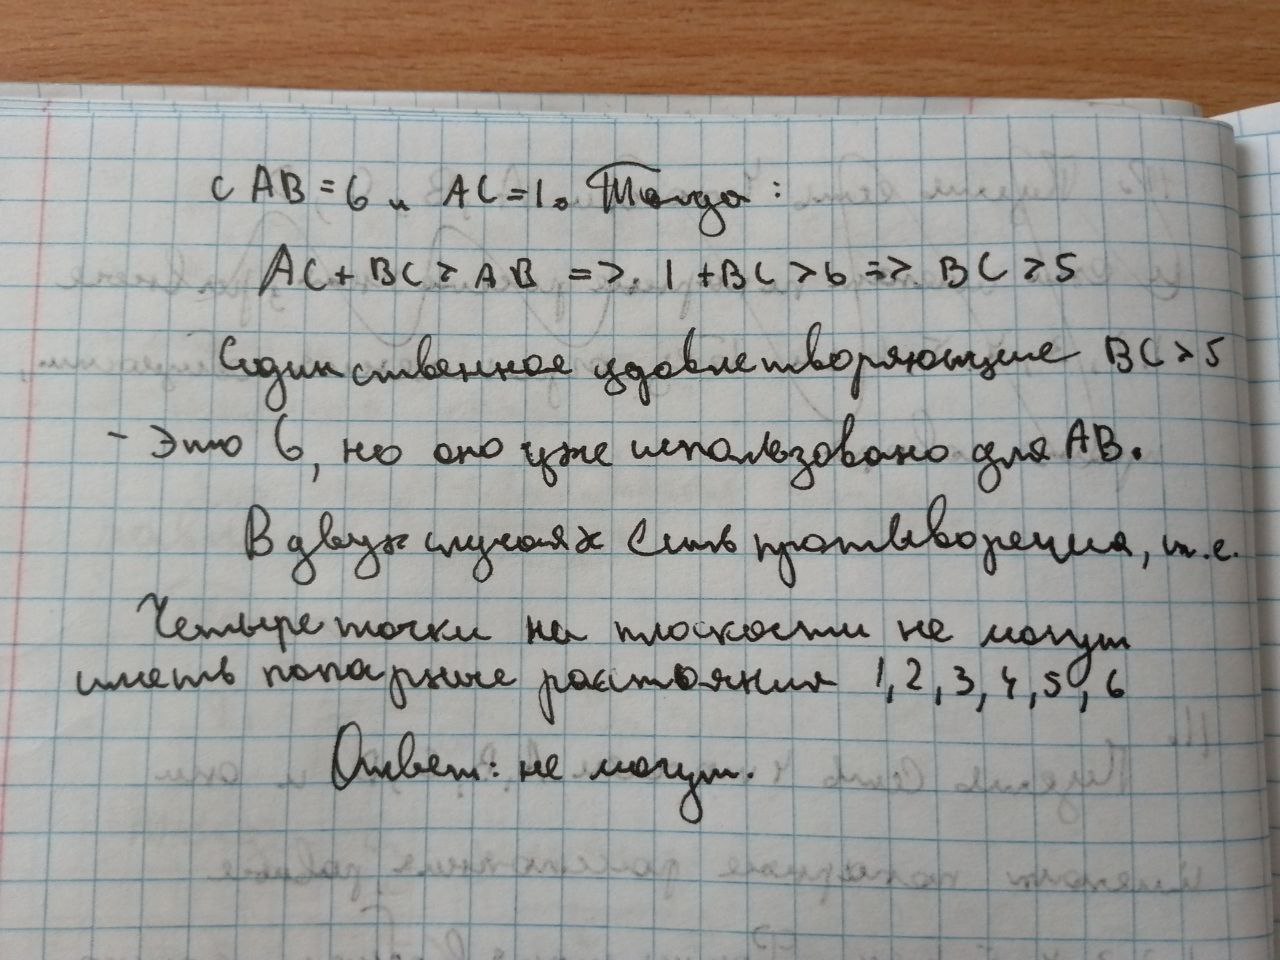 с AB = 6 и AC = 1. Тогда:
AC + BC > AB => 1 + BC > 6 => BC > 5
Единственное удовлетворяющие BC > 5
- Это 6, но оно уже использовано для AB.
В двух случаях есть противоречия, т.е.
Четыре точки на плоскости не могут
иметь попарные расстояния 1, 2, 3, 4, 5, 6
Ответ: не могут.